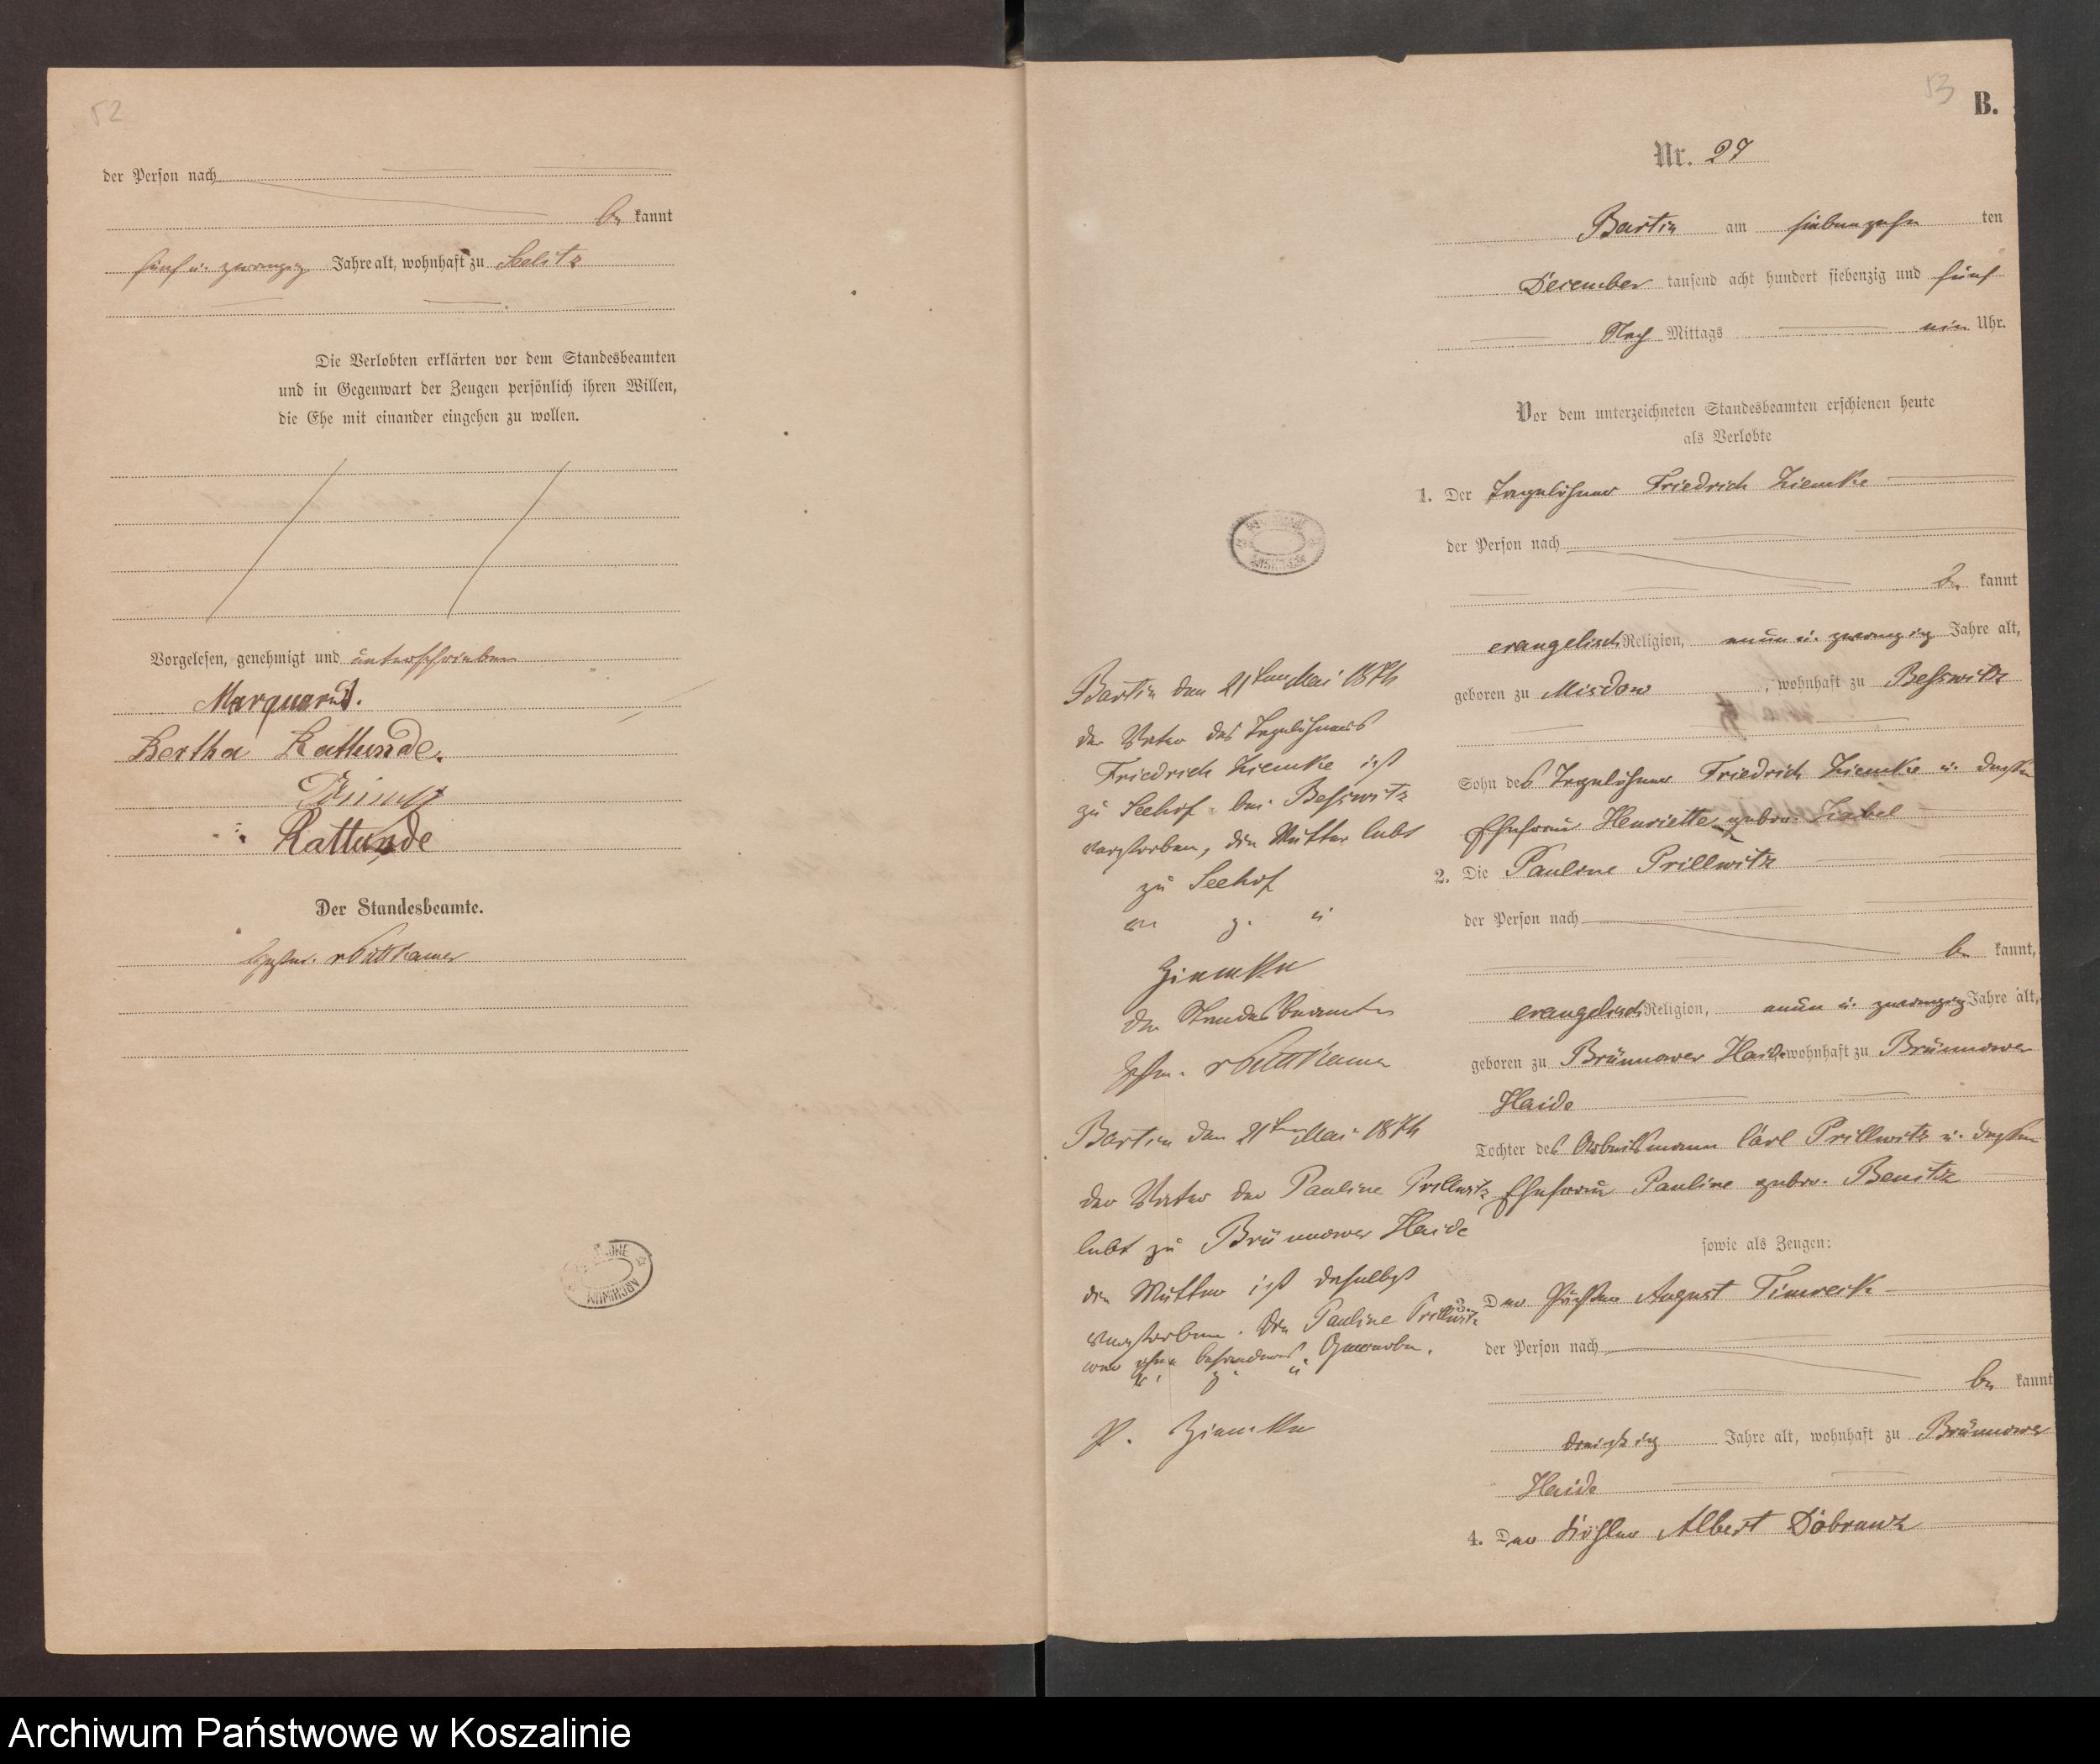 52
der Person nach
be kannt
fünf u. zwanzig Jahre alt, wohnhaft zu Seelitz
Die Verlobten erklärten vor dem Standesbeamten
und in Gegenwart der Zeugen persönlich ihren Willen,
die Ehe mit einander eingehen zu wollen.
Vorgelesen, genehmigt und unterschrieben
Marquardt.
Bertha Rattunde.
Rattunde
Der Standesbeamte.
v Puttkamer
ARCHIWUM
53
B.
Nr. 27
Bartin am siebenzehn ten
December tausend acht hundert siebenzig und fünf
Nach Mittags ein Uhr.
Vor dem unterzeichneten Standesbeamten erschienen heute
als Verlobte
1. Der Tagelöhner Friedrich Ziemke
der Person nach
be kannt
evangelisch Religion, neun u. zwanzig Jahre alt,
geboren zu Misdow, wohnhaft zu Besswitz
Sohn des Tagelöhner Friedrich Ziemke u. dessen
Ehefrau Henriette gebor. Ziabel
2. Die Pauline Prillwitz
der Person nach
be kannt,
evangelisch Religion, neun u. zwanzig Jahre alt,
geboren zu Brünnower Haide wohnhaft zu Brünnower
Haide
Tochter des Arbeitsmann Carl Prillwitz u. dessen
Ehefrau Pauline gebor. Benitz
sowie als Zeugen:
3. Der August Timreck
der Person nach
be kannt
dreißig Jahre alt, wohnhaft zu Brünnower
Haide
4. Der Albert Döbrawz
Bartin den 21ten Mai 1876
der Vater des Tagelöhners
Friedrich Ziemke ist
zu Seehof bei Besswitz
verstorben, die Mutter lebt
zu Seehof
v. g. u
Ziemke
der Standesbeamte
v Puttkamer
Bartin den 21ten Mai 1876
der Vater der Pauline Prillwitz
lebt zu Brünnower Haide
die Mutter ist daselbst
verstorben. Die Pauline Prillwitz
war ohne besonderes Gewerbe.
v. g. u
P. Ziemke
Archiwum Państwowe w Koszalinie